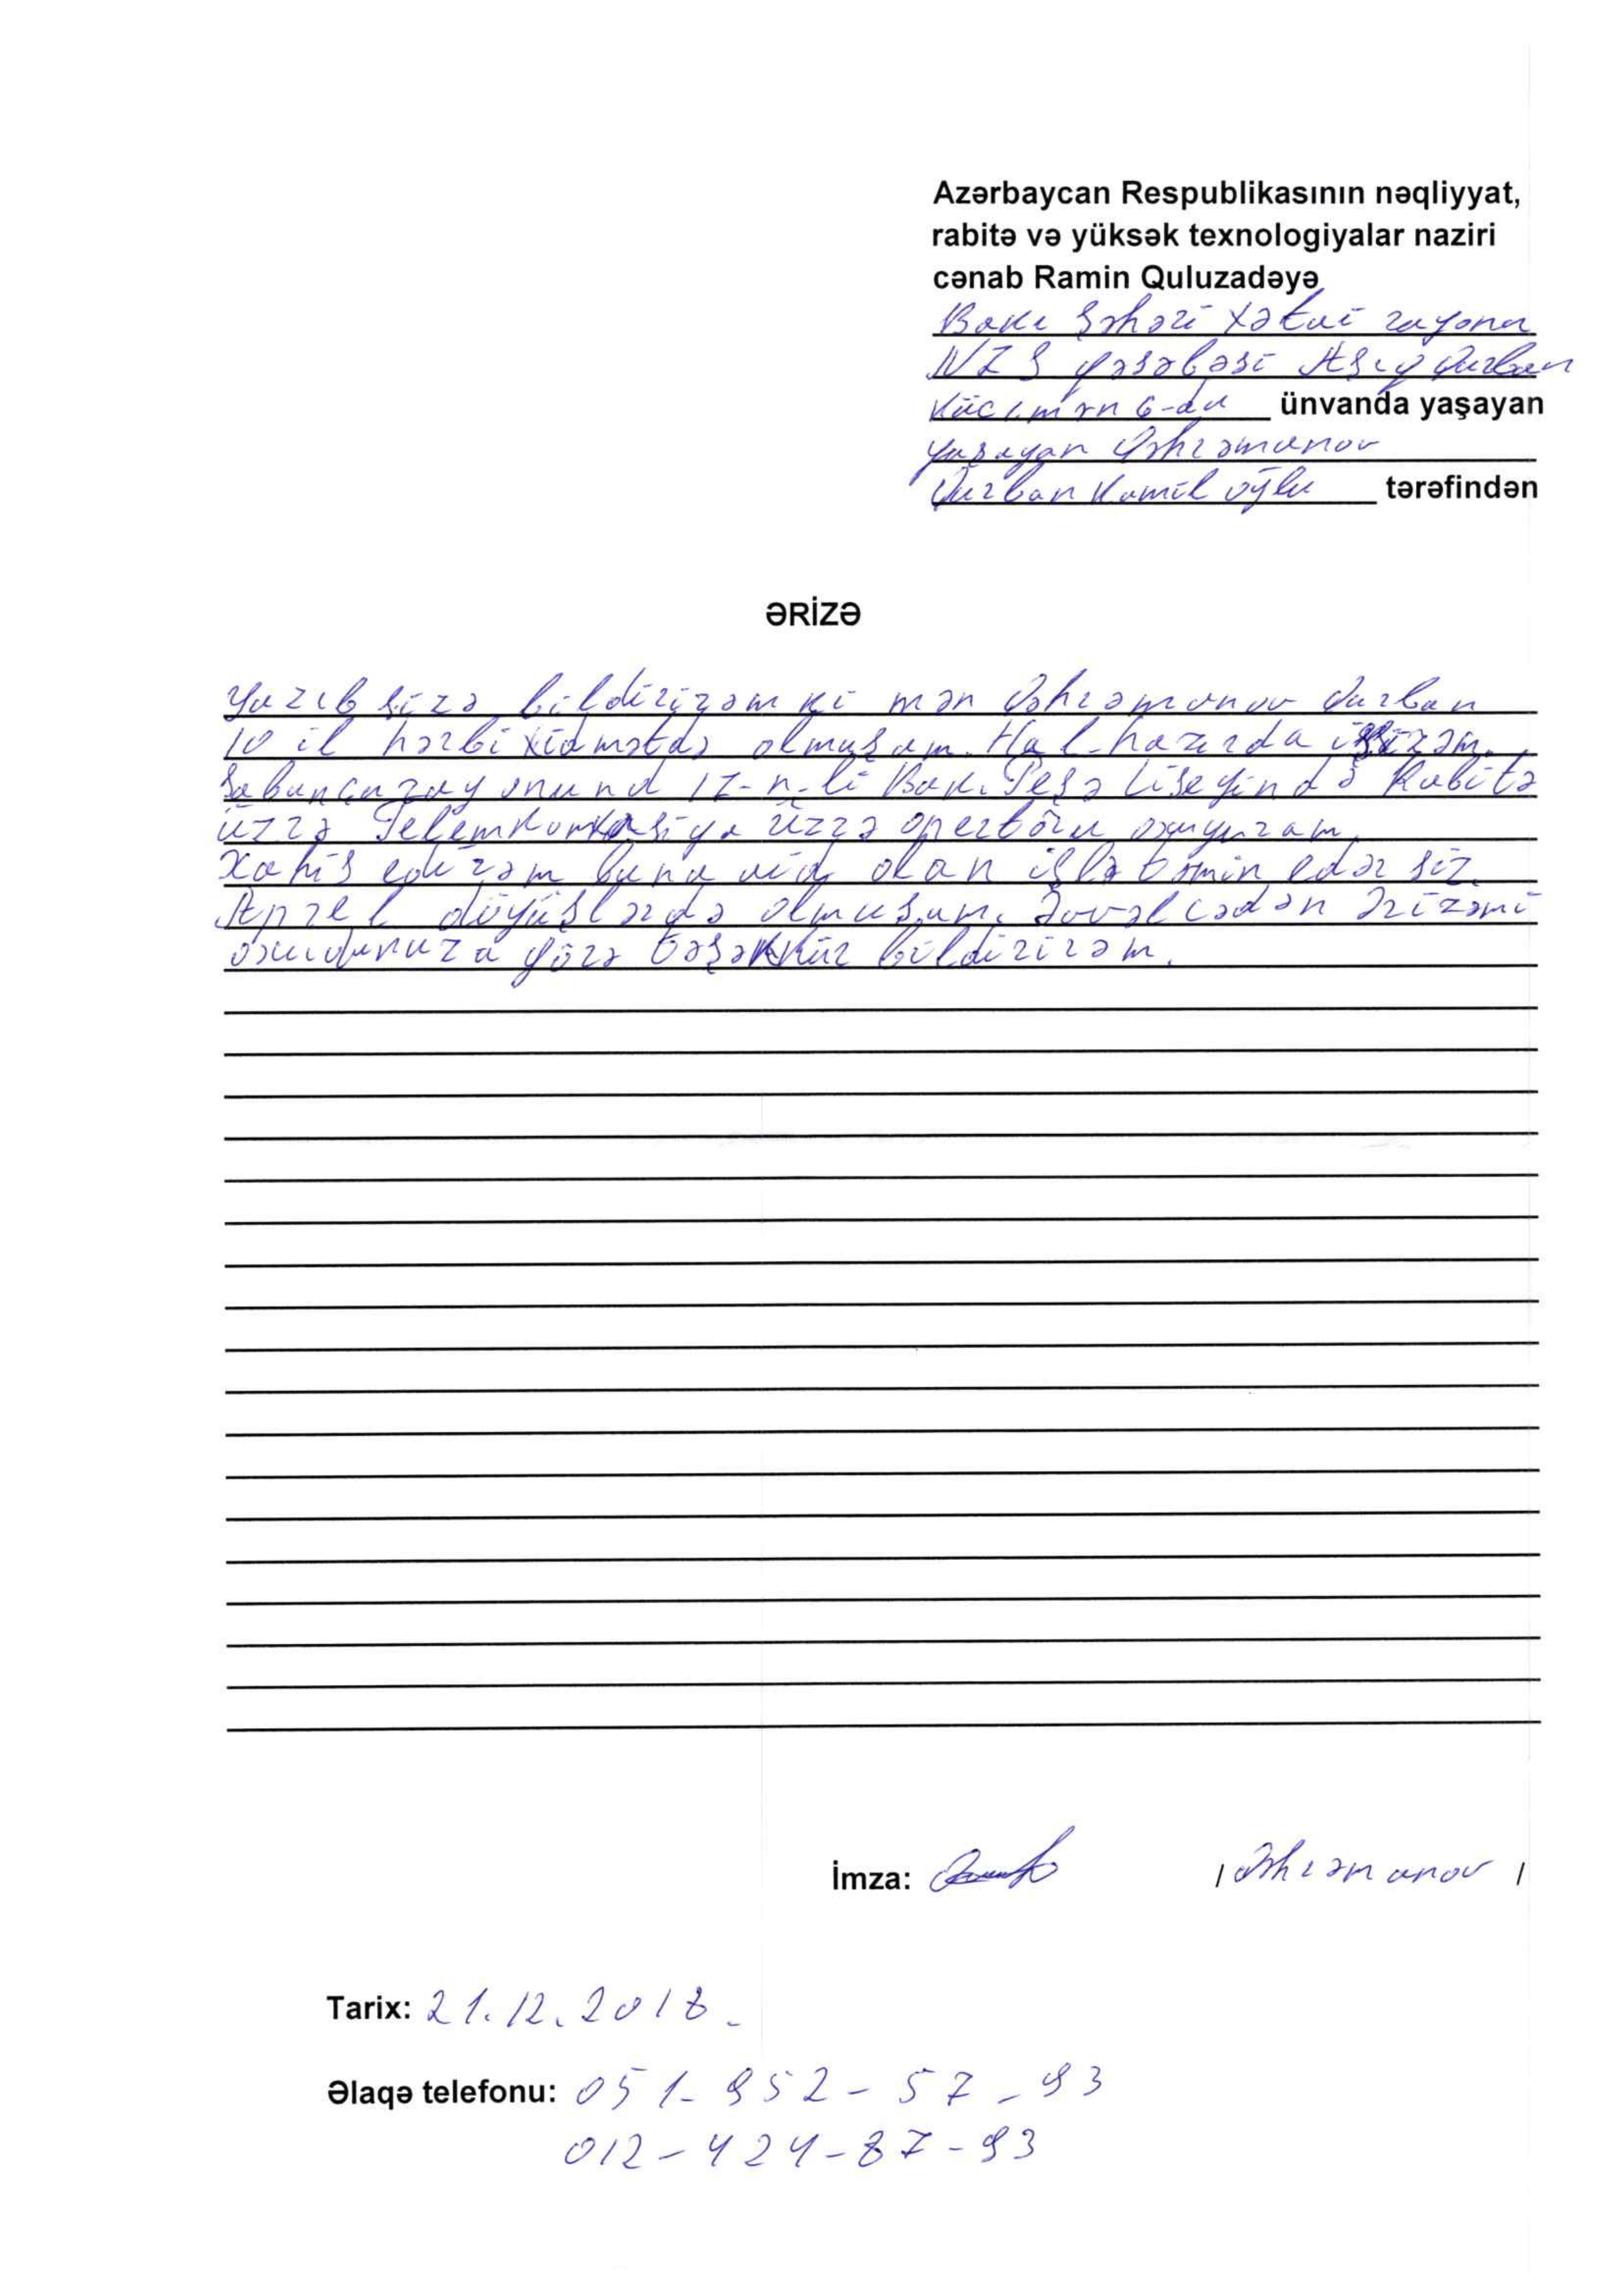 Azərbaycan Respublikasının nəqliyyat,
rabitə və yüksək texnologiyalar naziri
cənab Ramin Quluzadəyə
Bakı Şəhəri Xətai rayonu
NZS qəsəbəsi Aşıq Qurban
küc ünvanda yaşayan
yaşayan Qəhrəmanov
Qurban Kamil oğlu tərəfindən
ƏRİZƏ
Yazıb sizə bildirirəm ki mən Qəhrəmanov Qurban
10 il hərbi xidmətdə olmuşam. Hal-hazırda işsizəm.
17-n-li Bakı Peşə Liseyində Rabitə
üzrə üzrə opertöru oxuyuram.
Xahiş edirəm buna olan işlə təmin edər siz.
Aprel döyüşlərdə olmuşam. Əvvəlcədən ərizəmi
oxuduğunuza görə təşəkkür bildirirəm.
İmza: / Qəhrəmanov /
Tarix: 21.12.2018.
Əlaqə telefonu: 051-952-57-93
012-424-87-93